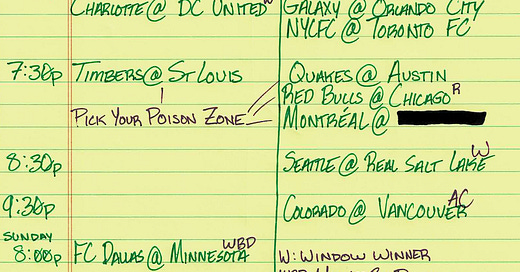 CHARLOTTE @ DC UNITED
GALAXY @ ORLANDO CITY
NYCFC @ TORONTO FC
7:30p TIMBERS @ ST LOUIS
QUAKES @ AUSTIN
RED BULLS @ CHICAGO R
PICK YOUR POISON ZONE
MONTRÉAL @
8:30p SEATTLE @ REAL SALT LAKE W
9:30p COLORADO @ VANCOUVER AC
SUNDAY
8:00p FC DALLAS @ MINNESOTA WBD
W: WINDOW WINNER